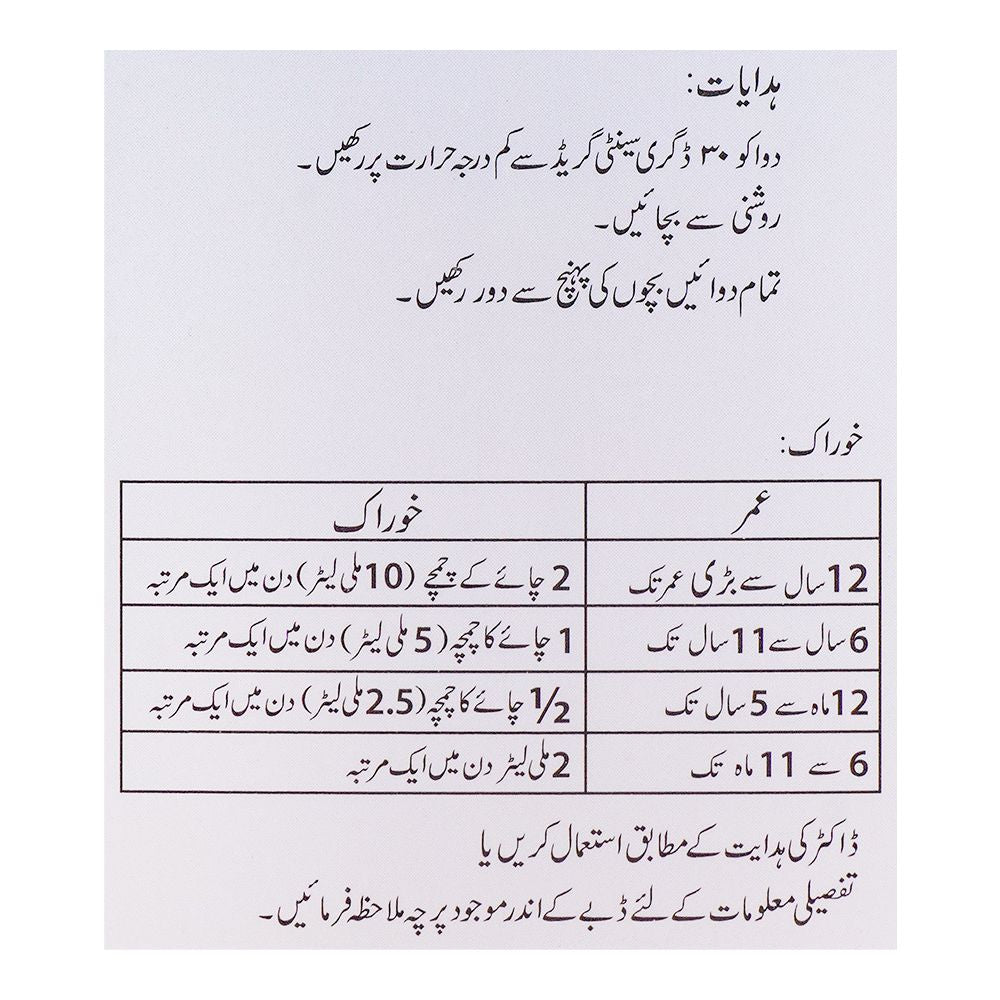 ہدایات:
دوا کو ۳۰ ڈگری سینٹی گریڈ سے کم درجہ حرارت پر رکھیں۔
روشنی سے بچائیں۔
تمام دوائیں بچوں کی پہنچ سے دور رکھیں۔
خوراک:
عمر خوراک
12 سال سے بڑی عمر تک 2 چائے کے چمچے (10 ملی لیٹر) دن میں ایک مرتبہ
6 سال سے 11 سال تک 1 چائے کا چمچہ (5 ملی لیٹر) دن میں ایک مرتبہ
12 ماہ سے 5 سال تک 1/2 چائے کا چمچہ (2.5 ملی لیٹر) دن میں ایک مرتبہ
6 سے 11 ماہ تک 2 ملی لیٹر دن میں ایک مرتبہ
ڈاکٹر کی ہدایت کے مطابق استعمال کریں یا
تفصیلی معلومات کے لئے ڈبے کے اندر موجود پرچہ ملاحظہ فرمائیں۔